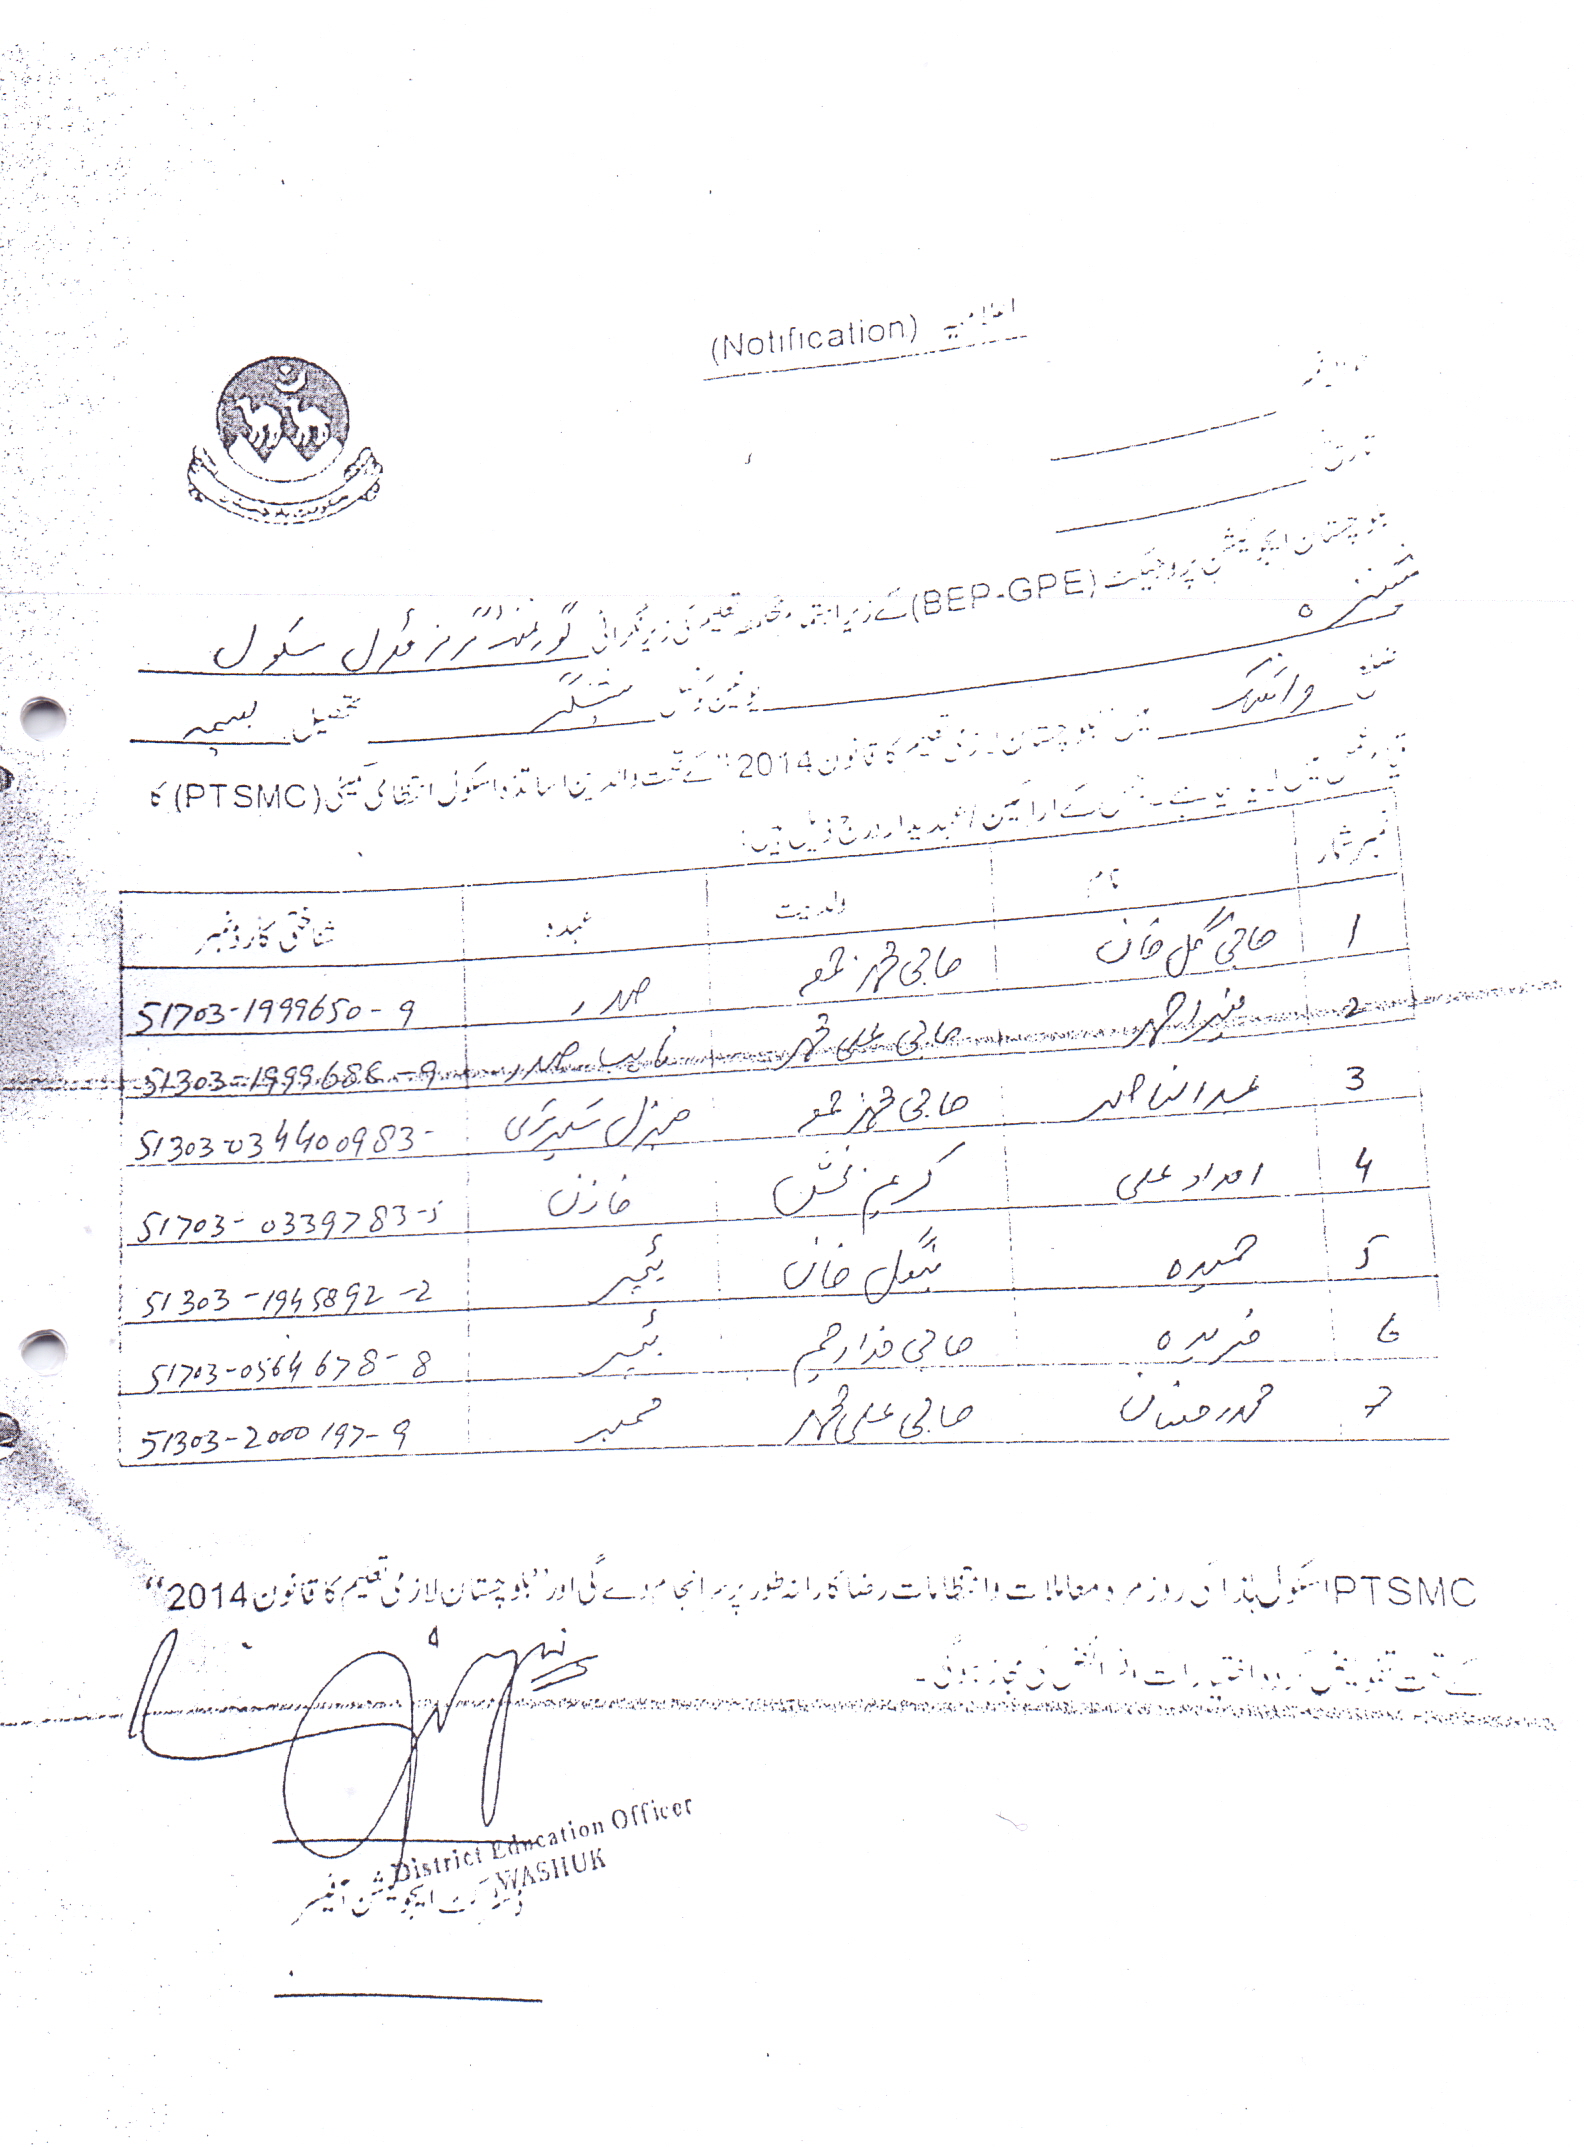 اعلامیہ (Notification)
تاریخ
بلوچستان ایجوکیشن پروجیکٹ (BEP-GPE) کے زیر اہتمام محکمہ تعلیم کی زیر نگرانی گورنمنٹ گرلز مڈل سکول
ضلع واشک یونین کونسل تحصیل بسیمہ
میں "بلوچستان لازمی تعلیم کا قانون 2014" کے تحت والدین اساتذہ اسکول انتظامی کمیٹی (PTSMC) کا
قیام عمل میں لایا گیا ہے۔ جس کے اراکین / عہدیدار درج ذیل ہیں:
نمبر شمار نام ولدیت عہدہ شناختی کارڈ نمبر
1 حاجی گل خان حاجی محمد صدر 51703-1999650-9
2 منیر احمد حاجی علی محمد نائب صدر 51303-1999688-9
3 عبدالناصر حاجی محمد جنرل سیکریٹری 51303-034400983-
4 امداد علی کریم بخش خازن 51703-0339783-5
5 حمیدہ خان ممبر 51303-1945892-2
6 فریدہ حاجی خدا رحیم ممبر 51703-0564678-8
7 محمد رمضان حاجی علی محمد ممبر 51303-2000197-9
PTSMC اسکول ہٰذا کی روزمرہ معاملات و انتظامات رضاکارانہ طور پر سرانجام دے گی اور "بلوچستان لازمی تعلیم کا قانون 2014"
کے تحت تفویض کردہ اختیارات اور فرائض کی مجاز ہوگی۔
District Education Officer
WASHUK
ڈسٹرکٹ ایجوکیشن آفیسر